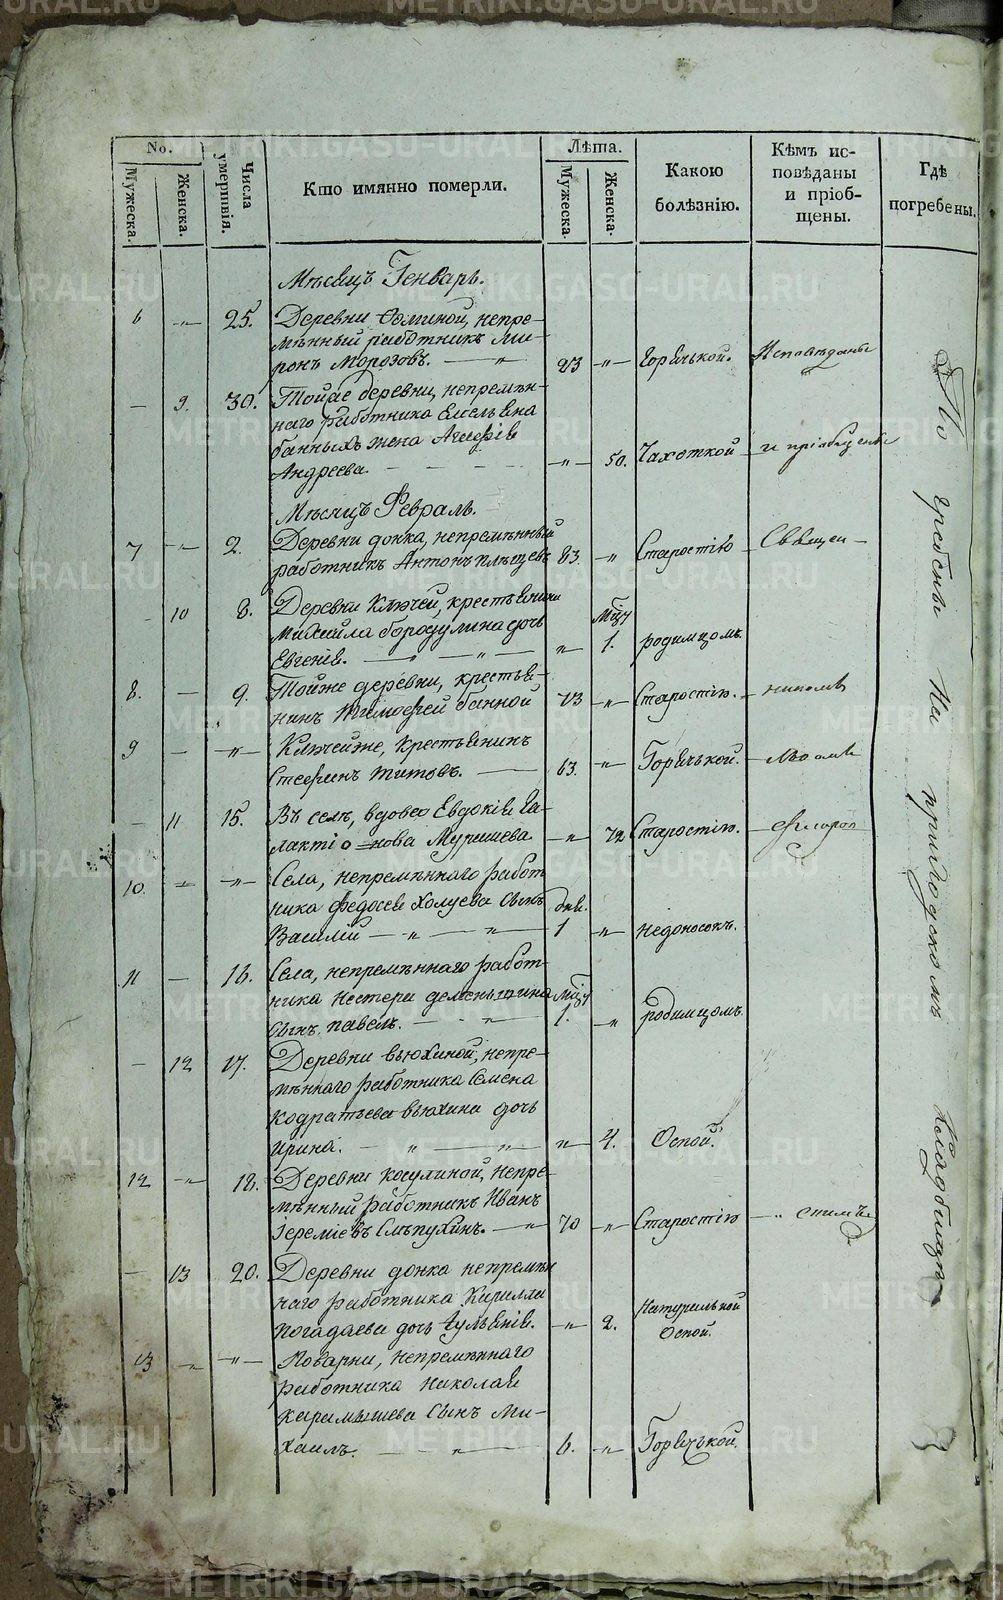 No.
Мужеска.
Женска.
Числа умершвія.
Кто имянно померли.
Лѣта.
Мужеска.
Женска.
Какою болѣзнію.
Кѣмъ ис-
повѣданы
и пріоб-
щены.
Гдѣ
погребены.
Мѣсяцъ Генварь.
6 — „ — 25. Деревни непре-
мѣнный работникъ Ми-
ронъ Морозовъ. — „ 23 — „ — Горячькой. Исповѣданы
— 9. 30. Тойже деревни, непремѣн-
наго работника Емельяна
банныхъ жена Агафія
Андреева. — — — — „ — 50. Чахоткой — и пріобщены
Мѣсяцъ Февраль.
7 — „ — 2. Деревни донка, непремѣнный
работникъ Антонъ 83. — „ Старостію —
— 10 8. Деревни Ключей, крестьянина
Михайла бородулина дочь мцъ
Евгенія. — „ — „ — — „ — 1. родимцомъ
8. — 9. Тойже деревни, крестья-
нинъ Тимофей банной 73 — „ — Старостію. — николае
9 — — „ — Ключейже, крестьянинъ
Стефанъ титовъ. — 63. — „ Горячькой.
— 11 15. Въ селѣ, вдова Евдокія Га-
лактіо=нова Мурашева — „ — 72 Старостію.
10. — — „ — Села, непремѣннаго работ-
ника Федосея Холуева сынъ дня.
Василій — „ — „ — 1 — „ — недоносокъ.
11 — 16. Села, непремѣннаго работ-
ника Нестера деменьшина мцъ
Сынъ павелъ. — „ 1. — „ родимцомъ
— 12 17. Деревни вьюхиной, непре-
мѣннаго работника Семена
Кодратьева вьюхина дочь
Ирина. — „ — „ — — „ — 4. Оспой.
12 — „ — 18. Деревни косулиной, непре-
мѣнный работникъ Иванъ
Іереміевъ Слѣпухинъ. — „ 70 — „ — Старостію — „
— 13 20. Деревни донка непремѣн
наго работника Кирилла
погадаева дочь Іульянія. — „ — 2. Натуральной
Оспой.
13 — „ — „ — Поварни, непремѣннаго
работника Николая
Карамышева Сынъ Ми-
хаилъ. — „ — 6. — „ — Горячькой.
По гребены На приходскомъ Кладбищѣ
METRIKI.GASO-URAL.RU